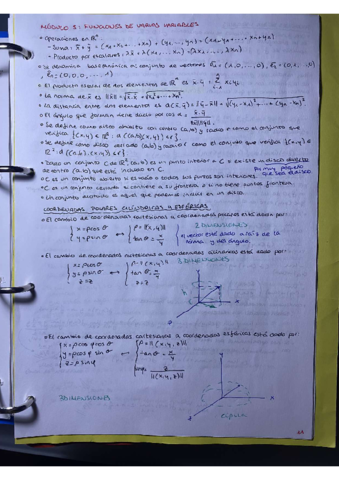 MÓDULO 3: FUNCIONES DE VARIAS VARIABLES
• Operaciones en ℝⁿ
- Suma: x̄ + ȳ = (x₁, x₂, ..., xn) + (y₁, ..., yn) = (x₁+y₁, ..., xn+yn)
- Producto por escalares: λx̄ = λ(x₁, ..., xn) = (λx₁, ..., λxn)
• Se denomina base canónica al conjunto de vectores ē₁ = (1,0,...,0), ē₂ = (0,1,...,0),
ēn = (0,0,...,1)
• El producto escalar de dos elementos de ℝⁿ es x̄·ȳ = Σ xᵢyᵢ
• La norma de x̄ es ||x̄|| = √x̄·x̄ = √x₁²+...+xn²
• La distancia entre dos elementos es d(x̄,ȳ) = ||ȳ-x̄|| = √(y₁-x₁)²+...+(yn-xn)²
• El ángulo que forman viene dado por cos α = x̄·ȳ / ||x̄||·||ȳ||
• Se define como disco abierto con centro (a,b) y radio r como el conjunto que
verifica {(x,y) ∈ ℝ² : d((a,b),(x,y)) < r}
• Se define como disco cerrado (a,b) y radio r como el conjunto que verifica {(x,y) ∈
ℝ² : d((a,b),(x,y)) ≤ r}
• Dado un conjunto C de ℝ², (a,b) es un punto interior a C si existe un disco abierto
de centro (a,b) que esté incluido en C.
• C es un conjunto abierto si todos sus puntos son interiores.
• C es un conjunto cerrado si contiene a su frontera o si no tiene puntos frontera.
• Un conjunto acotado es aquel que podemos incluir en un disco.
COORDENADAS POLARES, CILÍNDRICAS Y ESFÉRICAS
• El cambio de coordenadas cartesianas a coordenadas polares está dado por:
x = ρcos θ
y = ρsen θ
ρ = ||(x,y)||
tan θ = y/x
2 DIMENSIONES
El vector está dado a raíz de la
norma y del ángulo.
• El cambio de coordenadas cartesianas a coordenadas cilíndricas está dado por:
3 DIMENSIONES
x = ρcos θ
y = ρsen θ
z = z
tan θ = y/x
z = z
• El cambio de coordenadas cartesianas a coordenadas esféricas está dado por:
x = ρcos φ cos θ
y = ρcos φ sen θ
z = ρ sen φ
ρ = ||(x,y,z)||
tan θ = y/x
z / ||(x,y,z)||
3 DIMENSIONES